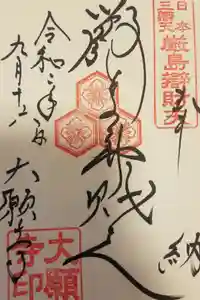 日本三弁天
厳島辯財天
奉納
嚴島辯財天
令和二年
九月十六日
大願寺
大願寺印